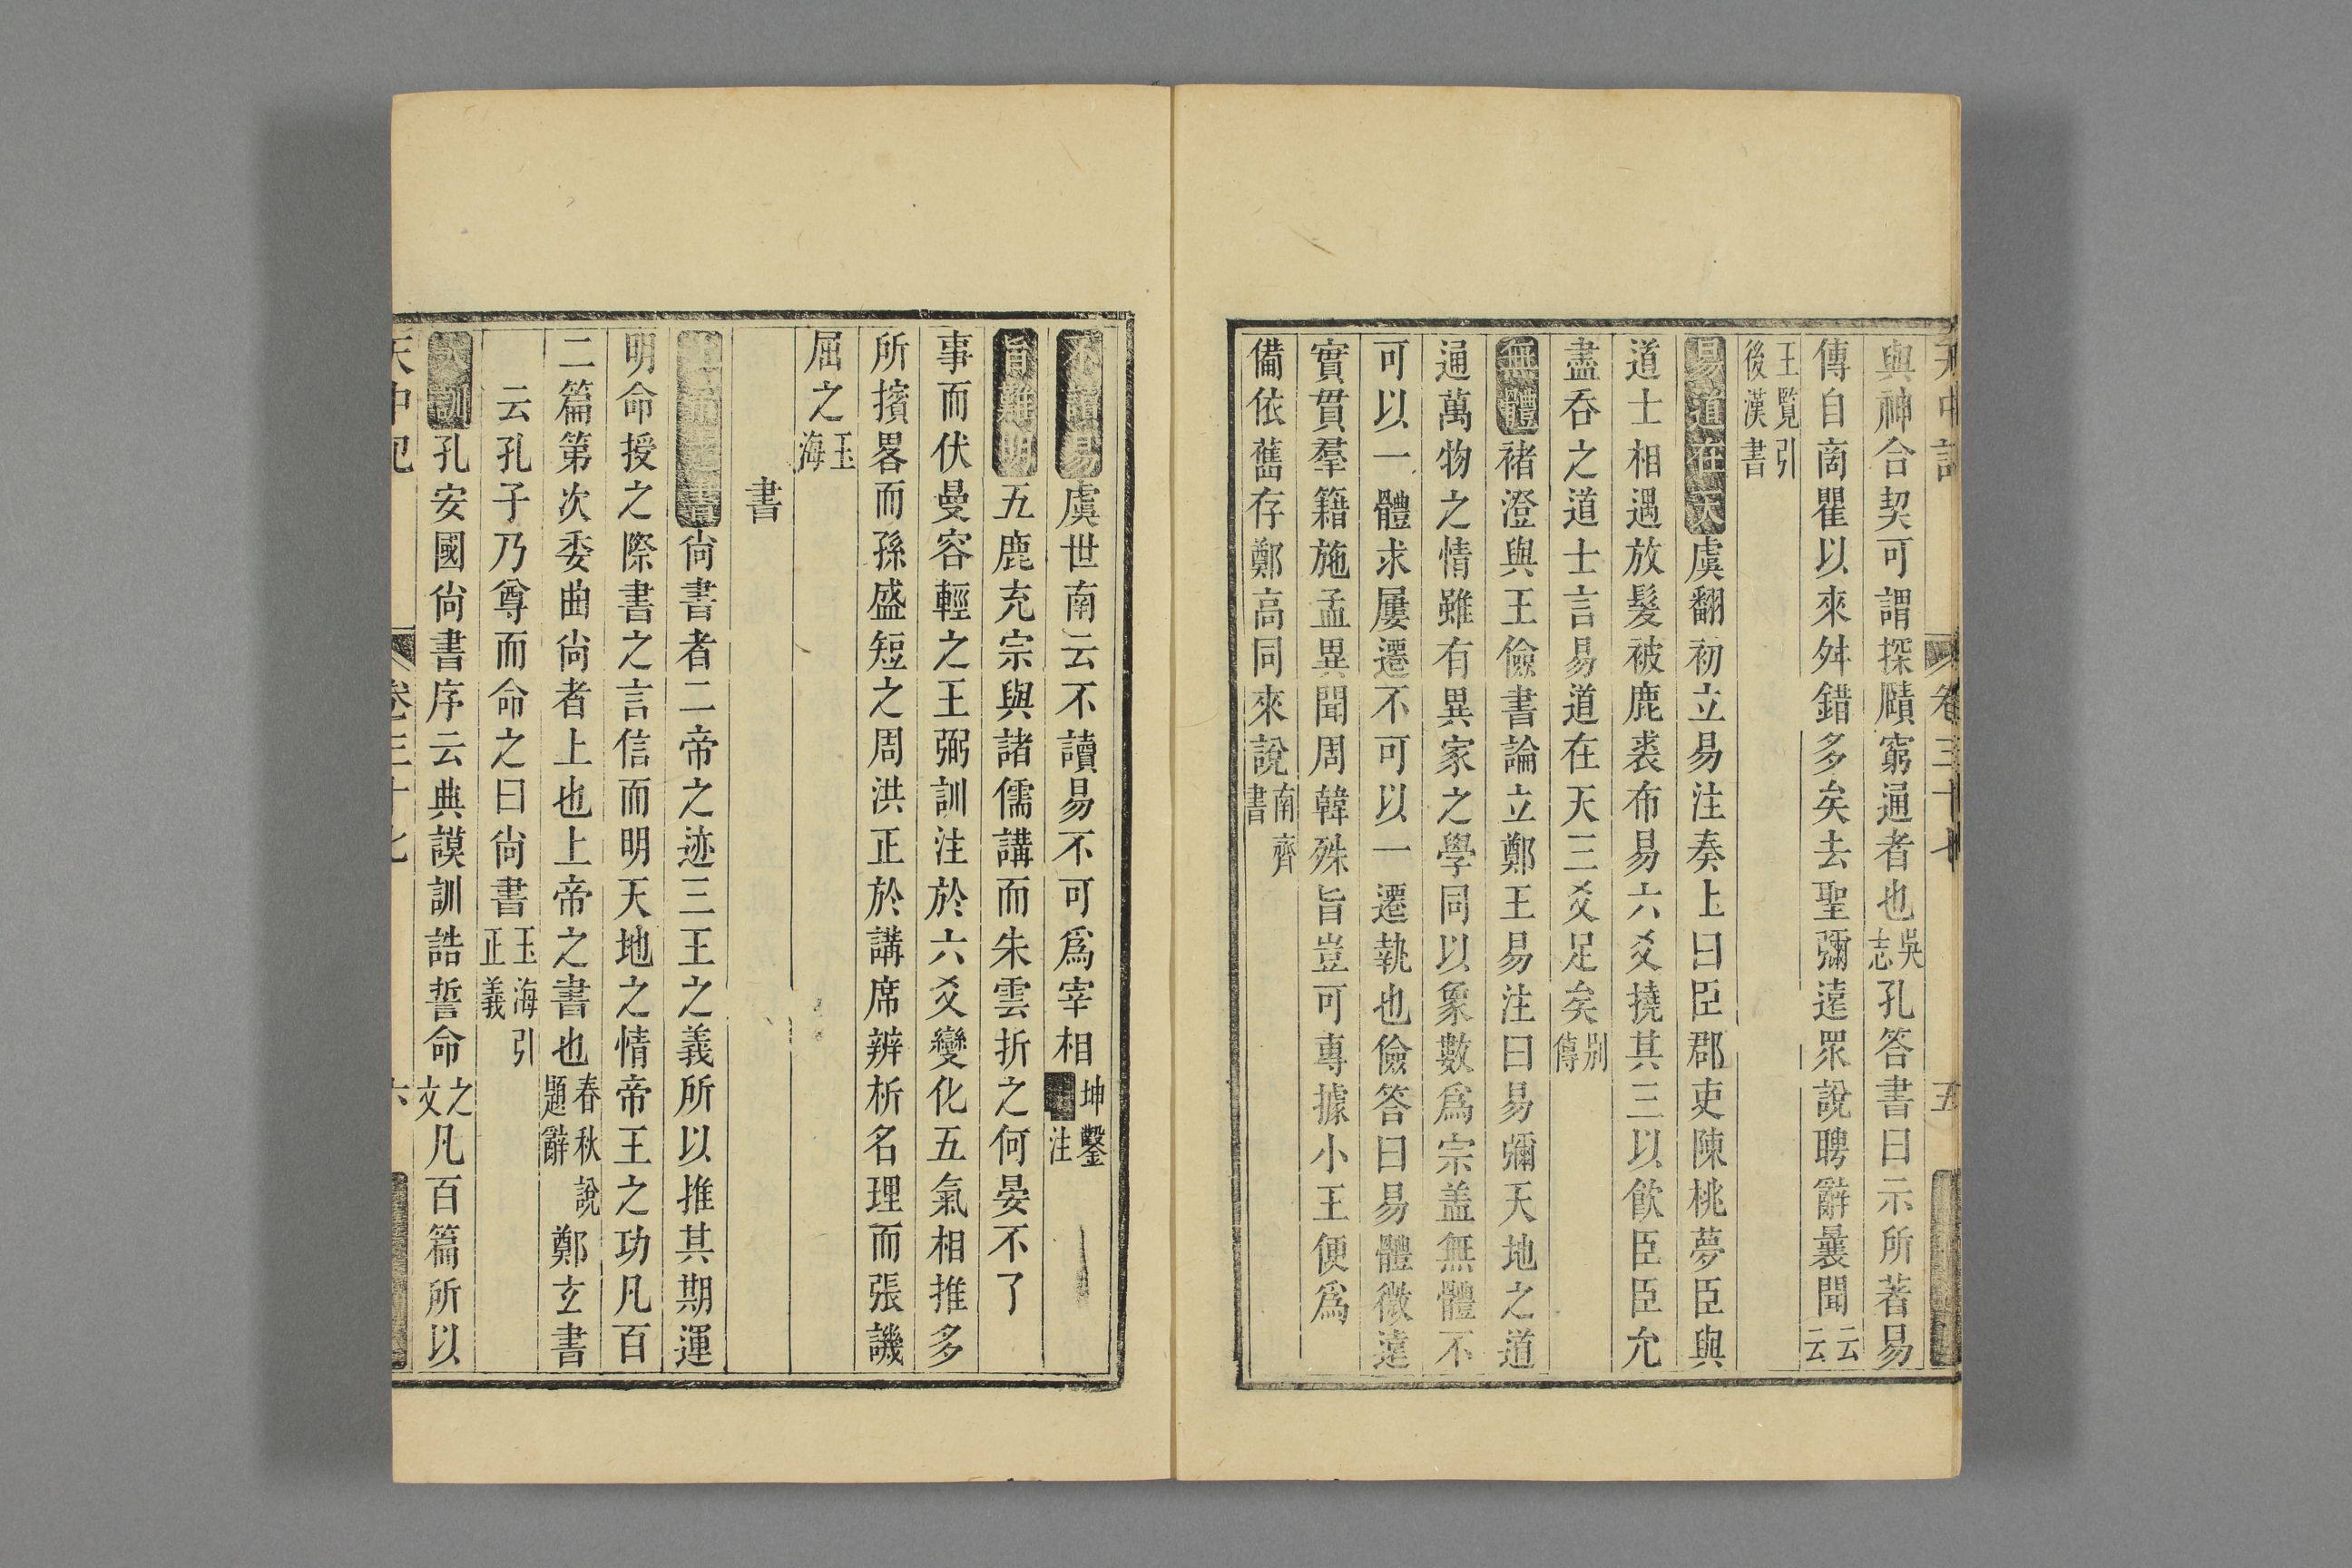 天中記 卷三十七 五
與神合契可謂探賾窮通者也吳志孔答書曰示所著易
傳自商瞿以來舛錯多矣去聖彌遠眾說騁辭曩聞云云
王覽引後漢書
易道在天虞翻初立易注奏上曰臣郡吏陳桃夢臣與
道士相遇放髮被鹿裘布易六爻撓其三以飲臣臣允
盡吞之道士言易道在天三爻足矣別傳
無體褚澄與王儉書論立鄭王易注曰易彌天地之道
通萬物之情雖有異家之學同以象數為宗盖無體不
可以一體求屢遷不可以一遷執也儉答曰易體微遠
實貫羣籍施孟異聞周韓殊旨豈可專據小王便爲
備依舊存鄭高同來說南齊書
不讀易虞世南云不讀易不可爲宰相坤鑿注
旨難明五鹿充宗與諸儒講而朱雲折之何晏不了
事而伏曼容輕之王弼訓注於六爻變化五氣相推多
所擯畧而孫盛短之周洪正於講席辨析名理而張譏
屈之玉海
書
書尙書者二帝之迹三王之義所以推其期運
明命授之際書之言信而明天地之情帝王之功凡百
二篇第次委曲尙者上也上帝之書也春秋說題辭鄭玄書
云孔子乃尊而命之曰尙書玉海引正義
訓孔安國尙書序云典謨訓誥誓命之文凡百篇所以
天中記 卷三十七 六